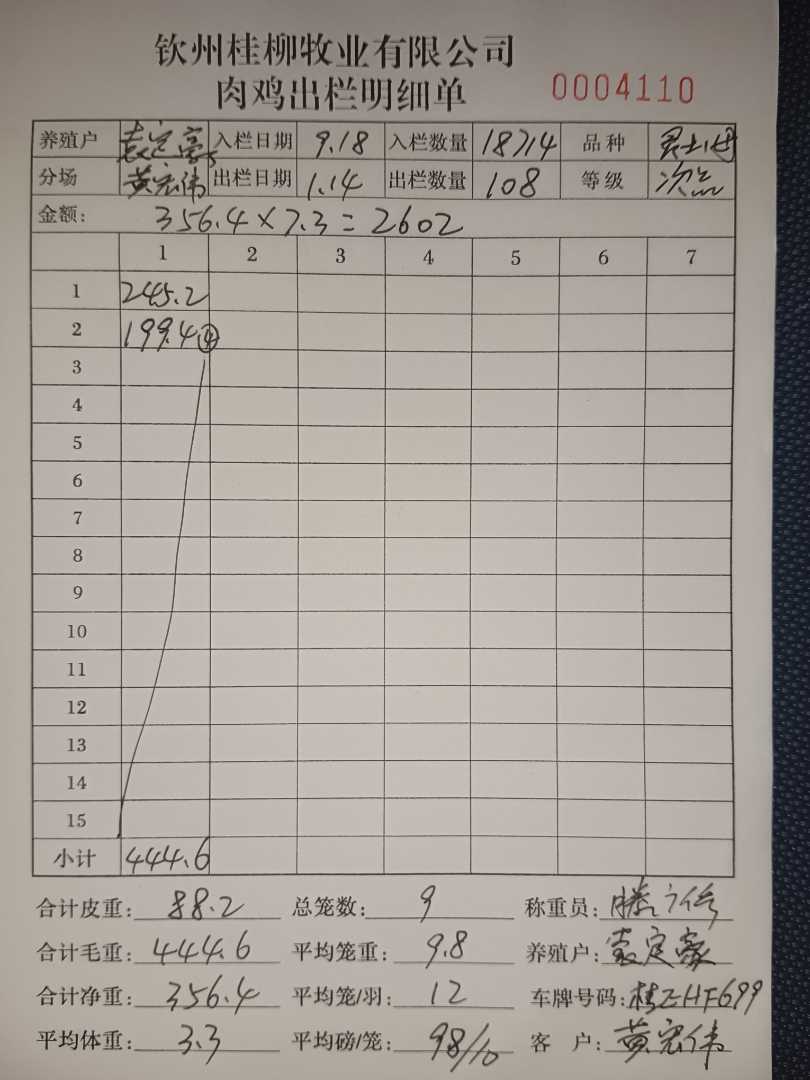 钦州桂柳牧业有限公司
肉鸡出栏明细单 0004110
养殖户 袁定豪 入栏日期 9.18 入栏数量 18714 品种
分场 黄宏伟 出栏日期 1.14 出栏数量 108 等级 次品
金额: 356.4×7.3=2602
1 2 3 4 5 6 7
1 245.2
2 199.4 ④
3
4
5
6
7
8
9
10
11
12
13
14
15
小计 444.6
合计皮重: 88.2 总笼数: 9 称重员:
合计毛重: 444.6 平均笼重: 9.8 养殖户: 袁定豪
合计净重: 356.4 平均笼/羽: 12 车牌号码:
平均体重: 3.3 平均磅/笼: 98/10 客 户: 黄宏伟